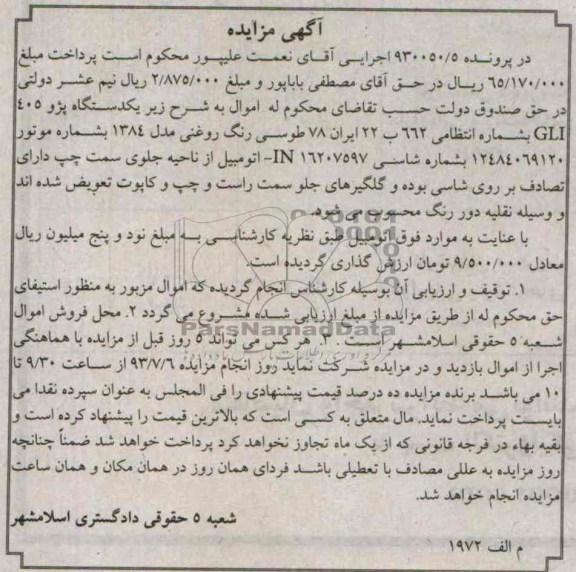 آگهی مزایده
در پرونده ۹۳۰۰۵۰/۵ اجرایی آقای نعمت علیپور محکوم است پرداخت مبلغ
۶۵/۱۷۰/۰۰۰ ریال در حق آقای مصطفی باباپور و مبلغ ۲/۸۷۵/۰۰۰ ریال نیم عشر دولتی
در حق صندوق دولت حسب تقاضای محکوم له اموال به شرح زیر یکدستگاه پژو ۴۰۵
GLI بشماره انتظامی ۶۶۲ ب ۲۲ ایران ۷۸ طوسی رنگ روغنی مدل ۱۳۸۴ بشماره موتور
۱۲۴۸۴۰۶۹۱۲۰ بشماره شاسی IN ۱۶۲۰۷۵۹۷- اتومبیل از ناحیه جلوی سمت چپ دارای
تصادف بر روی شاسی بوده و گلگیرهای جلو سمت راست و چپ و کاپوت تعویض شده اند
و وسیله نقلیه دور رنگ محسوب می شود.
با عنایت به موارد فوق اتومبیل طبق نظریه کارشناسی به مبلغ نود و پنج میلیون ریال
معادل ۹/۵۰۰/۰۰۰ تومان ارزش گذاری گردیده است.
۱. توقیف و ارزیابی آن بوسیله کارشناس انجام گردیده که اموال مزبور به منظور استیفای
حق محکوم له از طریق مزایده از مبلغ ارزیابی شده مشروع می گردد ۲. محل فروش اموال
شعبه ۵ حقوقی اسلامشهر است . ۳. هر کس می تواند ۵ روز قبل از مزایده با هماهنگی
اجرا از اموال بازدید و در مزایده شرکت نماید روز انجام مزایده ۹۳/۷/۶ از ساعت ۹/۳۰ تا
۱۰ می باشد برنده مزایده ده درصد قیمت پیشنهادی را فی المجلس به عنوان سپرده نقدا می
بایست پرداخت نماید. مال متعلق به کسی است که بالاترین قیمت را پیشنهاد کرده است و
بقیه بهاء در فرجه قانونی که از یک ماه تجاوز نخواهد کرد پرداخت خواهد شد ضمناً چنانچه
روز مزایده به عللی مصادف با تعطیلی باشد فردای همان روز در همان مکان و همان ساعت
مزایده انجام خواهد شد.
شعبه ۵ حقوقی دادگستری اسلامشهر
م الف ۱۹۷۲
ParsNamadData